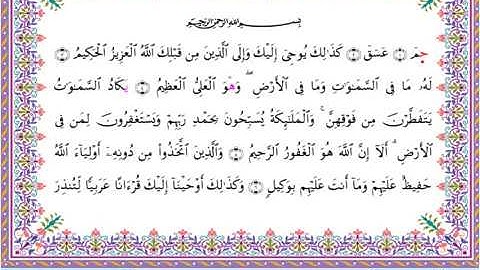 بِسْمِ ٱللَّهِ ٱلرَّحْمَٰنِ ٱلرَّحِيمِ
حمٓ ۝ عٓسٓقٓ ۝ كَذَٰلِكَ يُوحِىٓ إِلَيْكَ وَإِلَى ٱلَّذِينَ مِن قَبْلِكَ ٱللَّهُ ٱلْعَزِيزُ ٱلْحَكِيمُ ۝
لَهُۥ مَا فِى ٱلسَّمَٰوَٰتِ وَمَا فِى ٱلْأَرْضِ ۖ وَهُوَ ٱلْعَلِىُّ ٱلْعَظِيمُ ۝ تَكَادُ ٱلسَّمَٰوَٰتُ
يَتَفَطَّرْنَ مِن فَوْقِهِنَّ ۚ وَٱلْمَلَٰٓئِكَةُ يُسَبِّحُونَ بِحَمْدِ رَبِّهِمْ وَيَسْتَغْفِرُونَ لِمَن فِى
ٱلْأَرْضِ ۗ أَلَآ إِنَّ ٱللَّهَ هُوَ ٱلْغَفُورُ ٱلرَّحِيمُ ۝ وَٱلَّذِينَ ٱتَّخَذُوا۟ مِن دُونِهِۦٓ أَوْلِيَآءَ ٱللَّهُ
حَفِيظٌ عَلَيْهِمْ وَمَآ أَنتَ عَلَيْهِم بِوَكِيلٍ ۝ وَكَذَٰلِكَ أَوْحَيْنَآ إِلَيْكَ قُرْءَانًا عَرَبِيًّا لِّتُنذِرَ